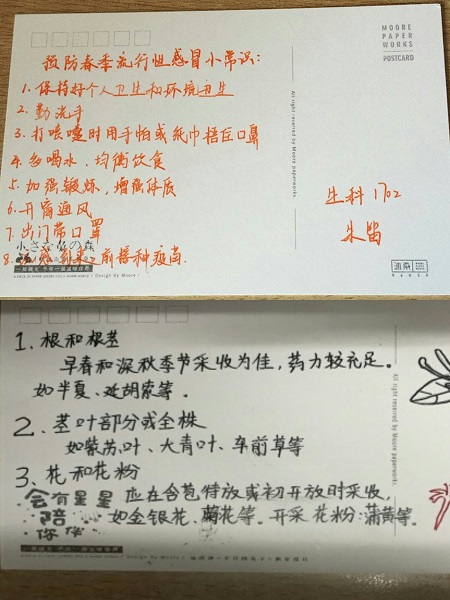 MOORE
PAPER
WORKS
POSTCARD
预防春季流行性感冒小常识:
1. 保持好个人卫生和环境卫生
2. 勤洗手
3. 打喷嚏时用手帕或纸巾捂住口鼻
4. 多喝水,均衡饮食
5. 加强锻炼,增强体质
6. 开窗通风
7. 出门带口罩
小さな仏の森
前接种疫苗.
生科1702
All right reserved by Moore paperworks
Design by Moore
1. 根和根茎
早春和深秋季节采收为佳,药力较充足。
如半夏、延胡索等。
2. 茎叶部分或全株
如紫苏叶、大青叶、车前草等
3. 花和花粉
会有星星 应在含苞待放或初开放时采收,
陪 如金银花、菊花等。开采花粉:蒲黄等。
你伴
All right reserved by Moore paperworks
Design by Moore